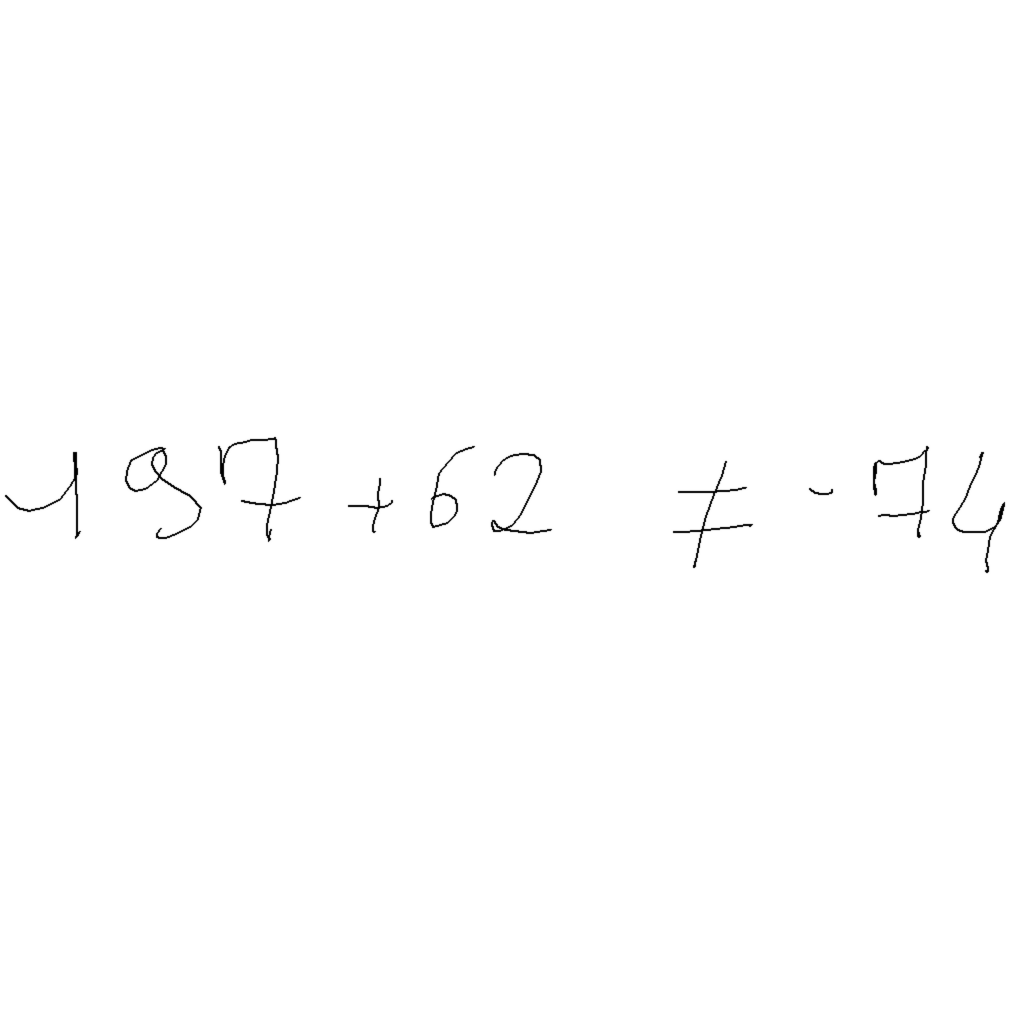 197 + 62 ≠ -74